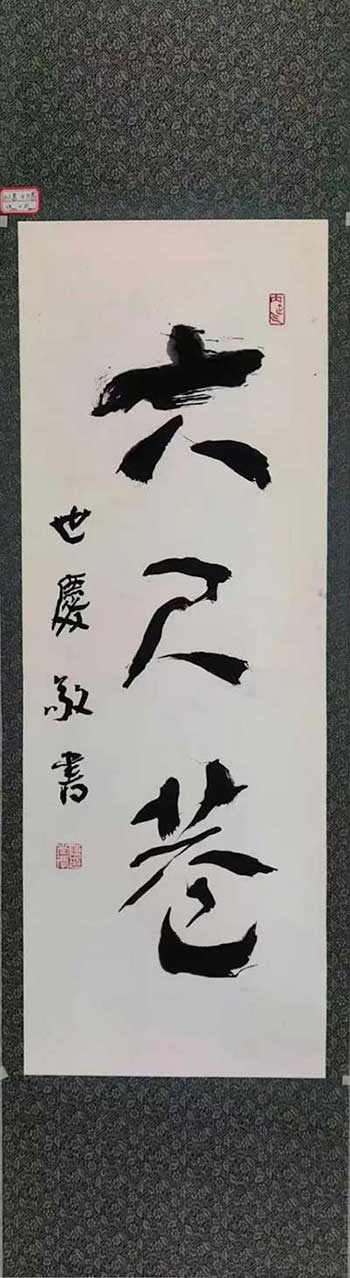 六尺巷
世慶敬書